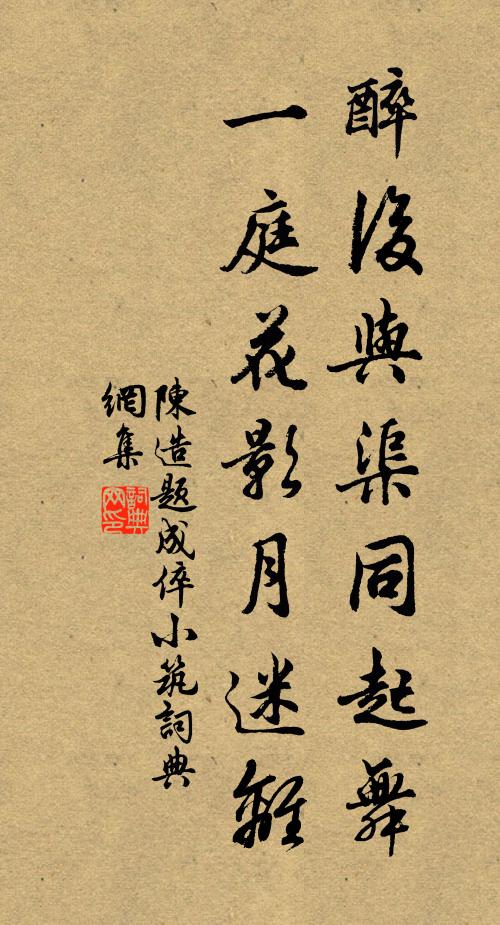 醉後與渠同起舞
一庭花影月迷離
陳造題成倅小筑詞典
網集
詞典
网印